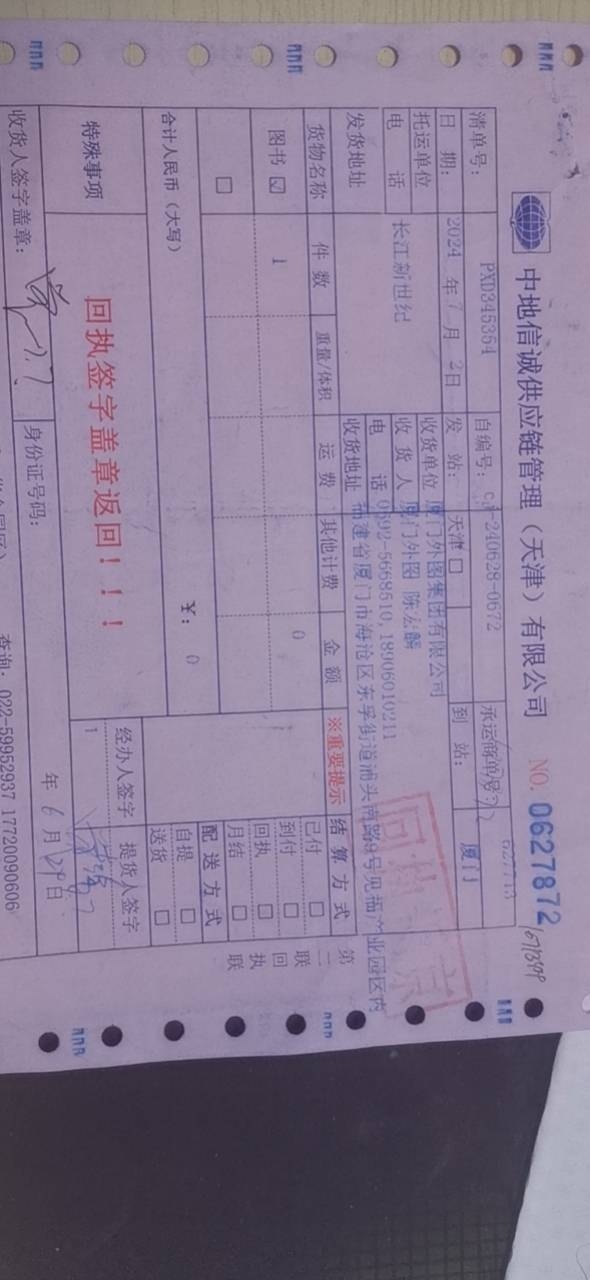 中地信诚供应链管理（天津）有限公司 NO. 0627872
清单号： PXD345354 自编号：
日 期： 2024 年 7 月 2 日 发 站： 天津 □ 到 站： 厦门
托运单位 长江新世纪 收货单位 厦门外图集团有限公司
电 话 收 货 人 厦门外图 陈宏麟
电 话 0592-5668510,18906010211
发货地址 收货地址 福建省厦门市海沧区东孚街道浦头南路9号见福产业园区内
货物名称 件 数 重量/体积 运 费 其他计费 金 额 ※重要提示 结 算 方 式
图书 ☑ 1 0
□
已付 □
到付 □
回执 □
月结 □
合计人民币（大写） ￥： 0
配 送 方 式
自提 □
送货 □
特殊事项 回执签字盖章返回！！！
经办人签字 提货人签字
1
收货人签字盖章： 身份证号码： 年 6 月 29 日
查询：022-59952937 17720090606
第二联 回执联